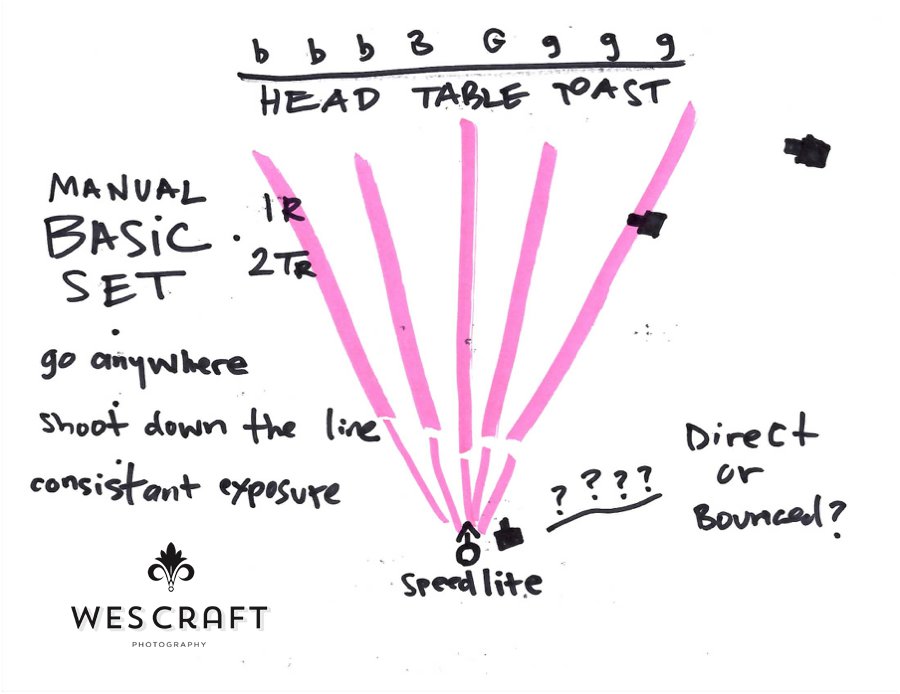 b b b B G g g g
HEAD TABLE TOAST
MANUAL
BASiC
SET
1R
2TR
go anywhere
shoot down the line
consistant exposure
? ? ? ?
Direct
or
Bounced?
Speedlite
WES CRAFT
PHOTOGRAPHY